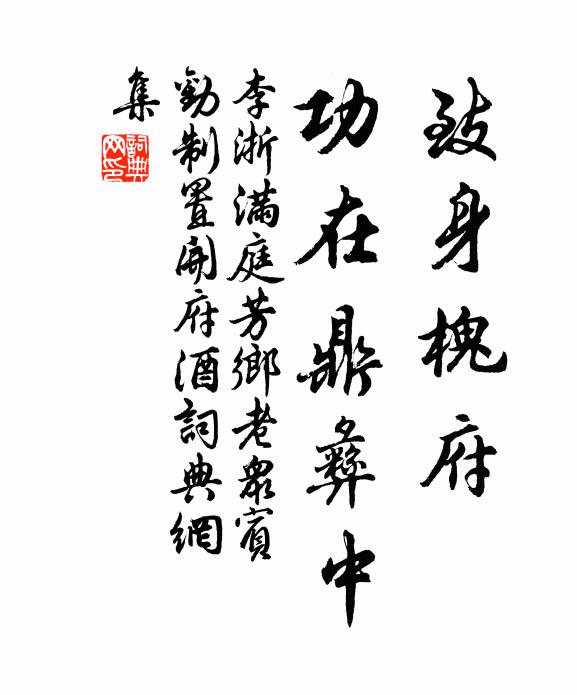 致身槐府
功在鼎彝中
李浙滿庭芳鄉老眾賓
勸制置開府酒詞典網
集
詞典網印